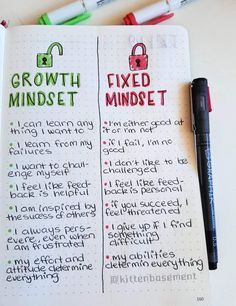 GROWTH
MINDSET
• I can learn any
thing I want to
• I learn from my
failures
• I want to chall-
enge myself
• I feel like feed-
back is helpful
• I am inspired by
the success of others
• I always pers-
evere, even when
I am frustrated
• my effort and
attitude determine
everything
FIXED
MINDSET
• I'm either good at
it or i'm not
• if I fail, I'm no
good
• I don't like to be
challenged
• I feel like feed-
back is personal
• if you succeed, I
feel threatened
• I give up if I find
something
difficult
• my abilities
determine everything
@kittenbasement
160